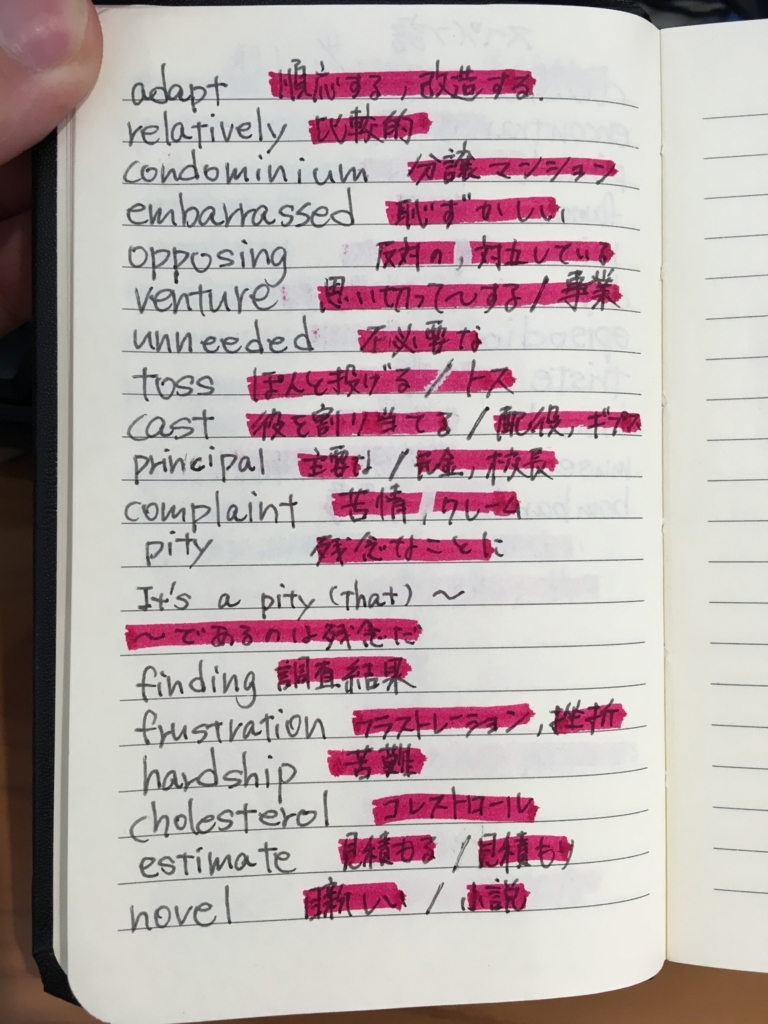 adapt 順応する, 改造する.
relatively 比較的
condominium 分譲マンション
embarrassed 恥ずかしい
opposing 反対の, 対立している
venture 思い切って〜する / 事業
unneeded 不必要な
toss ぽんと投げる / トス
cast 役を割り当てる / 配役, ギプス
principal 主要な / 元金, 校長
complaint 苦情, クレーム
pity 残念なことに
It's a pity (that) 〜
〜であるのは残念だ
finding 調査結果
frustration フラストレーション, 挫折
hardship 苦難
cholesterol コレストロール
estimate 見積もる / 見積もり
novel 斬新しい / 小説